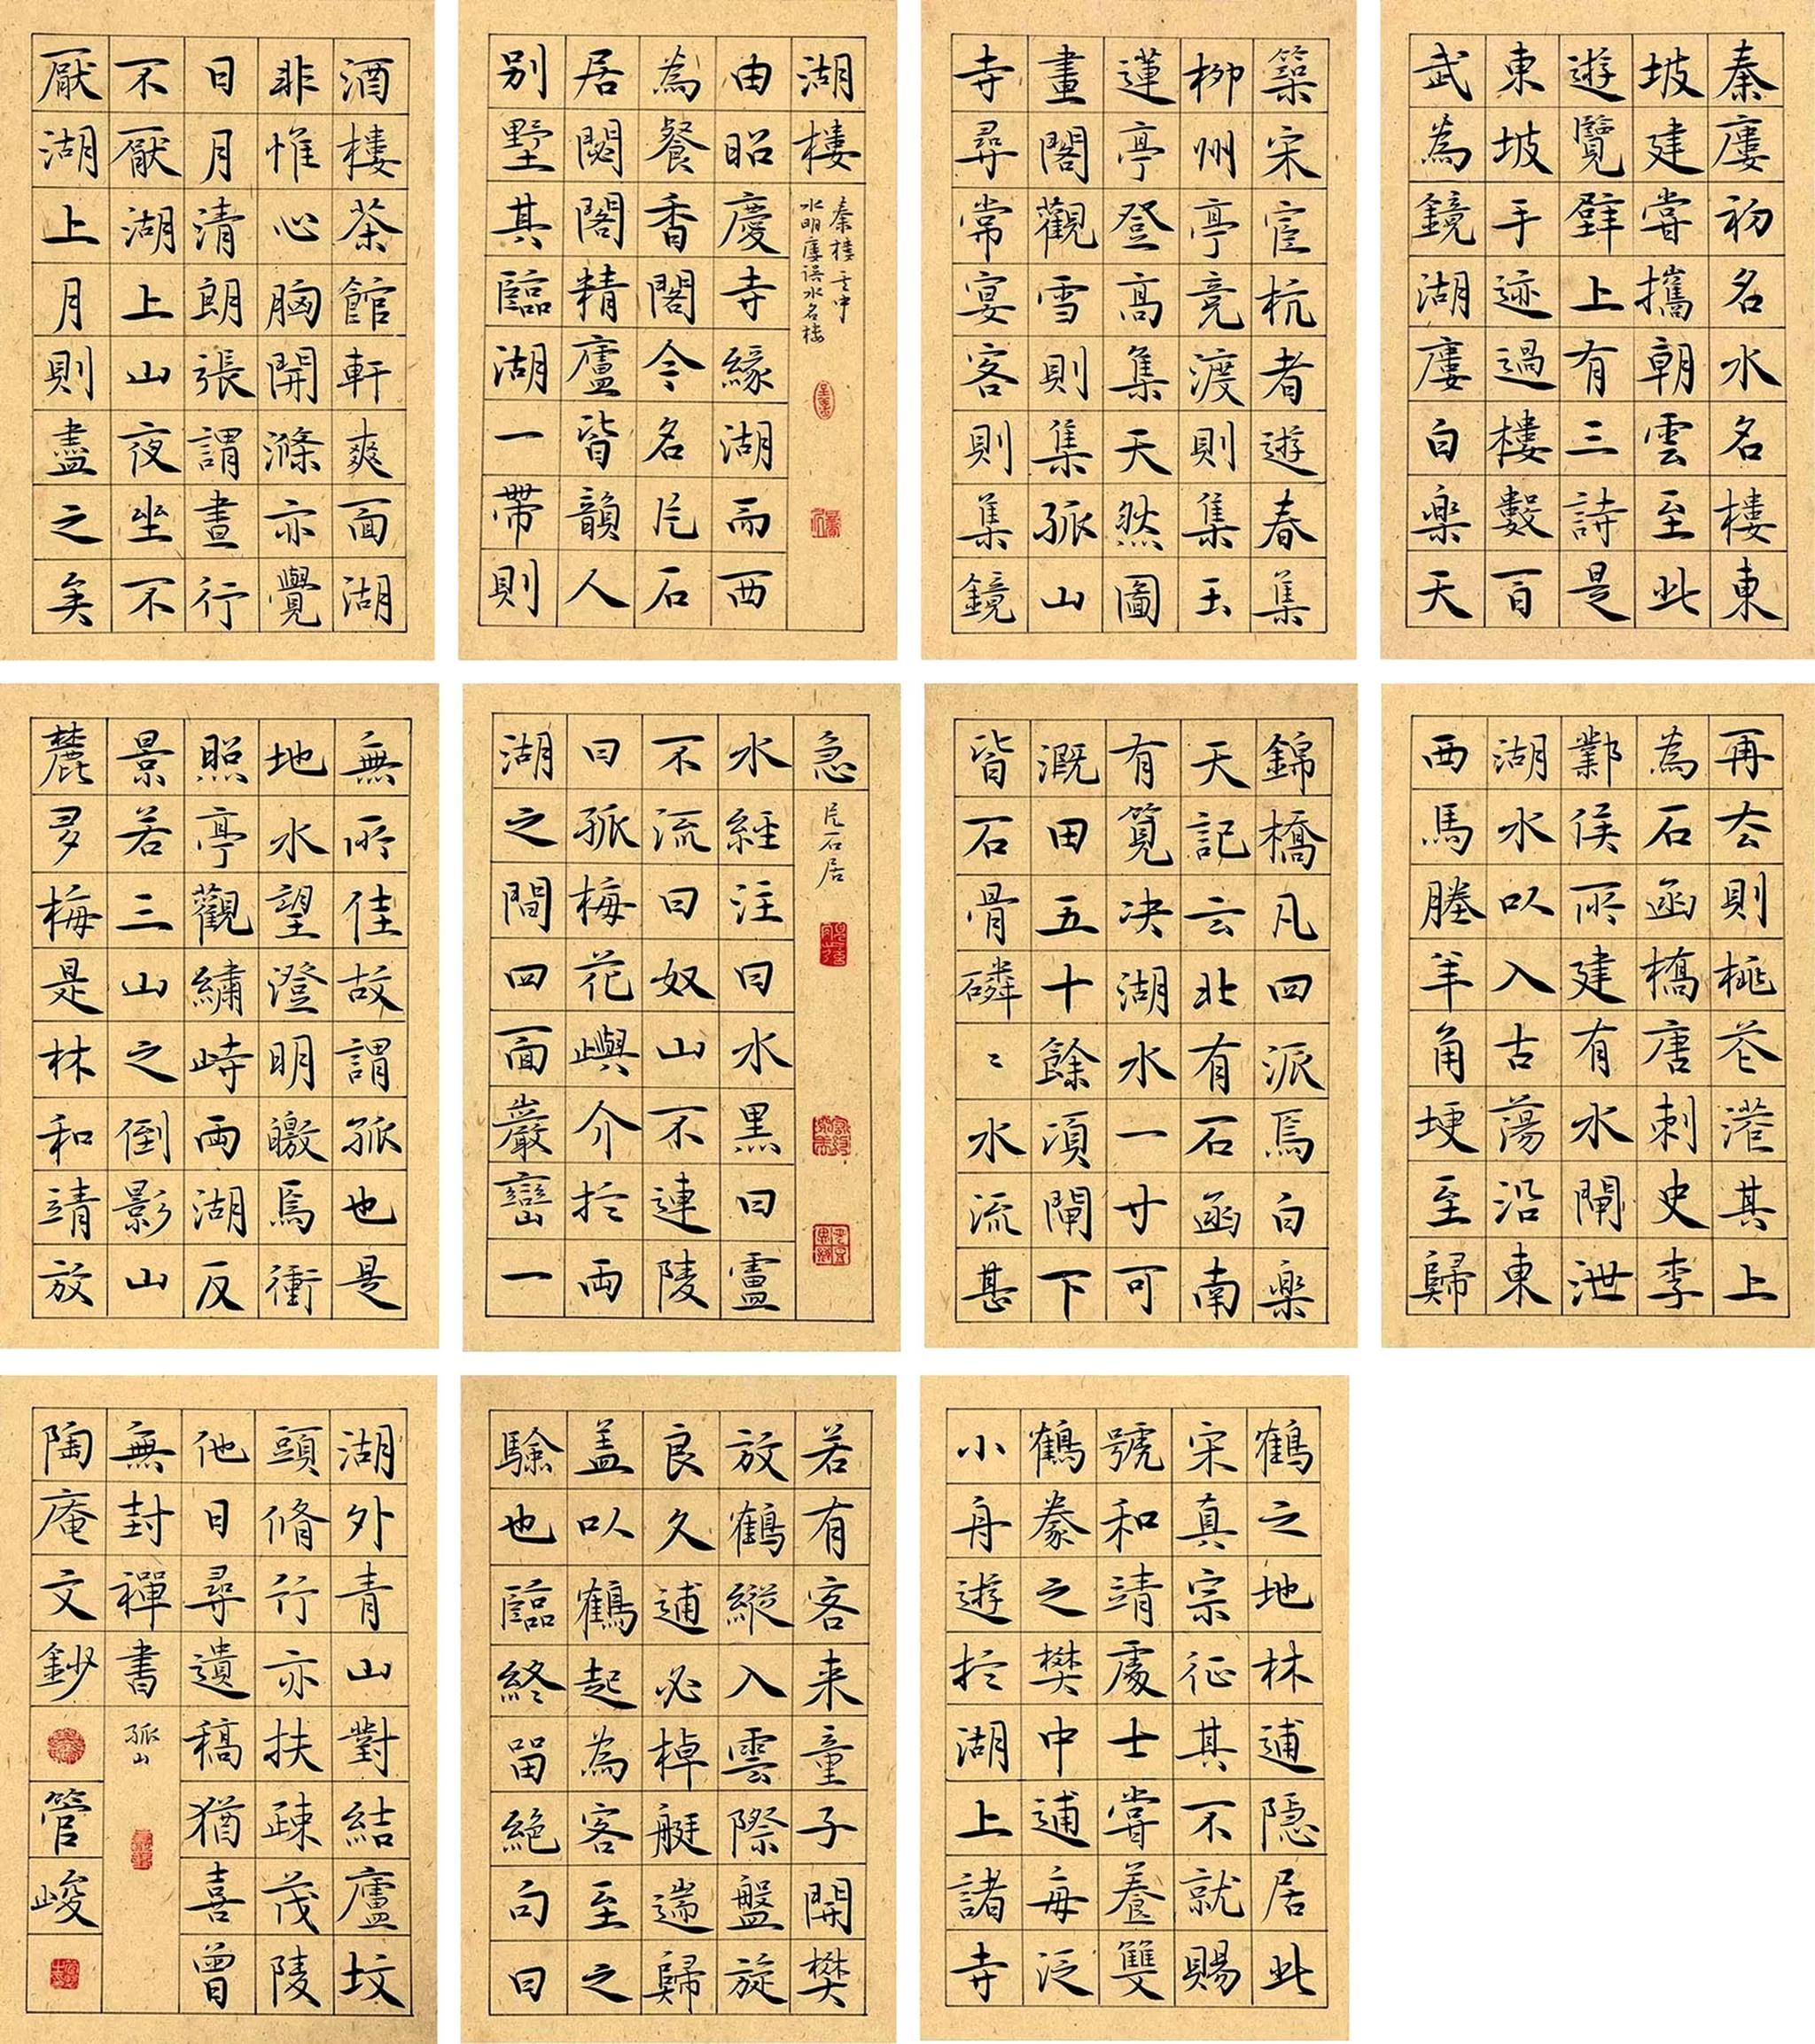 秦廔初名水名樓東
坡建嘗攜朝雲至此
遊覽壁上有三詩是
東坡手迹過樓數百
武為鏡湖廔白樂天
築宋宦杭者遊春集
柳州亭競渡則集玉
蓮亭登高集天然圖
畫閣觀雪則集孤山
寺尋常宴客則集鏡
湖樓
秦樓 中
水明廔误水名楼
由昭慶寺緣湖而西
為餐香閣今名片石
居閟閣精廬皆韻人
別墅其臨湖一帶則
酒樓茶館軒爽面湖
非惟心胸開滌亦覺
日月清朗張謂晝行
不厭湖上山夜坐不
厭湖上月則盡之矣
再去則桃花港其上
為石函橋唐刺史李
鄴侯所建有水閘泄
湖水以入古蕩沿東
西馬塍羊角埂至歸
錦橋凡四派焉白樂
天記云北有石函南
有筧决湖水一寸可
溉田五十餘頃閘下
皆石骨磷〻水流甚
急 片石居
水經注曰水黑曰盧
不流曰奴山不連陵
曰孤梅花嶼介於兩
湖之間四面巖巒一
無所佳故謂孤也是
地水望澄明皦焉衝
照亭觀繡峙兩湖反
景若三山之倒影山
麓多梅是林和靖放
鶴之地林逋隱居此
宋真宗征其不就賜
號和靖處士嘗養雙
鶴豢之樊中逋每泛
小舟遊於湖上諸寺
若有客来童子開樊
放鶴縱入雲際盤旋
良久逋必棹艇遄歸
盖以鶴起為客至之
驗也臨終留絕句曰
湖外青山對結廬坟
頭脩行亦扶疎茂陵
他日尋遺稿猶喜曾
無封禪書 孤山
陶庵文鈔 管峻